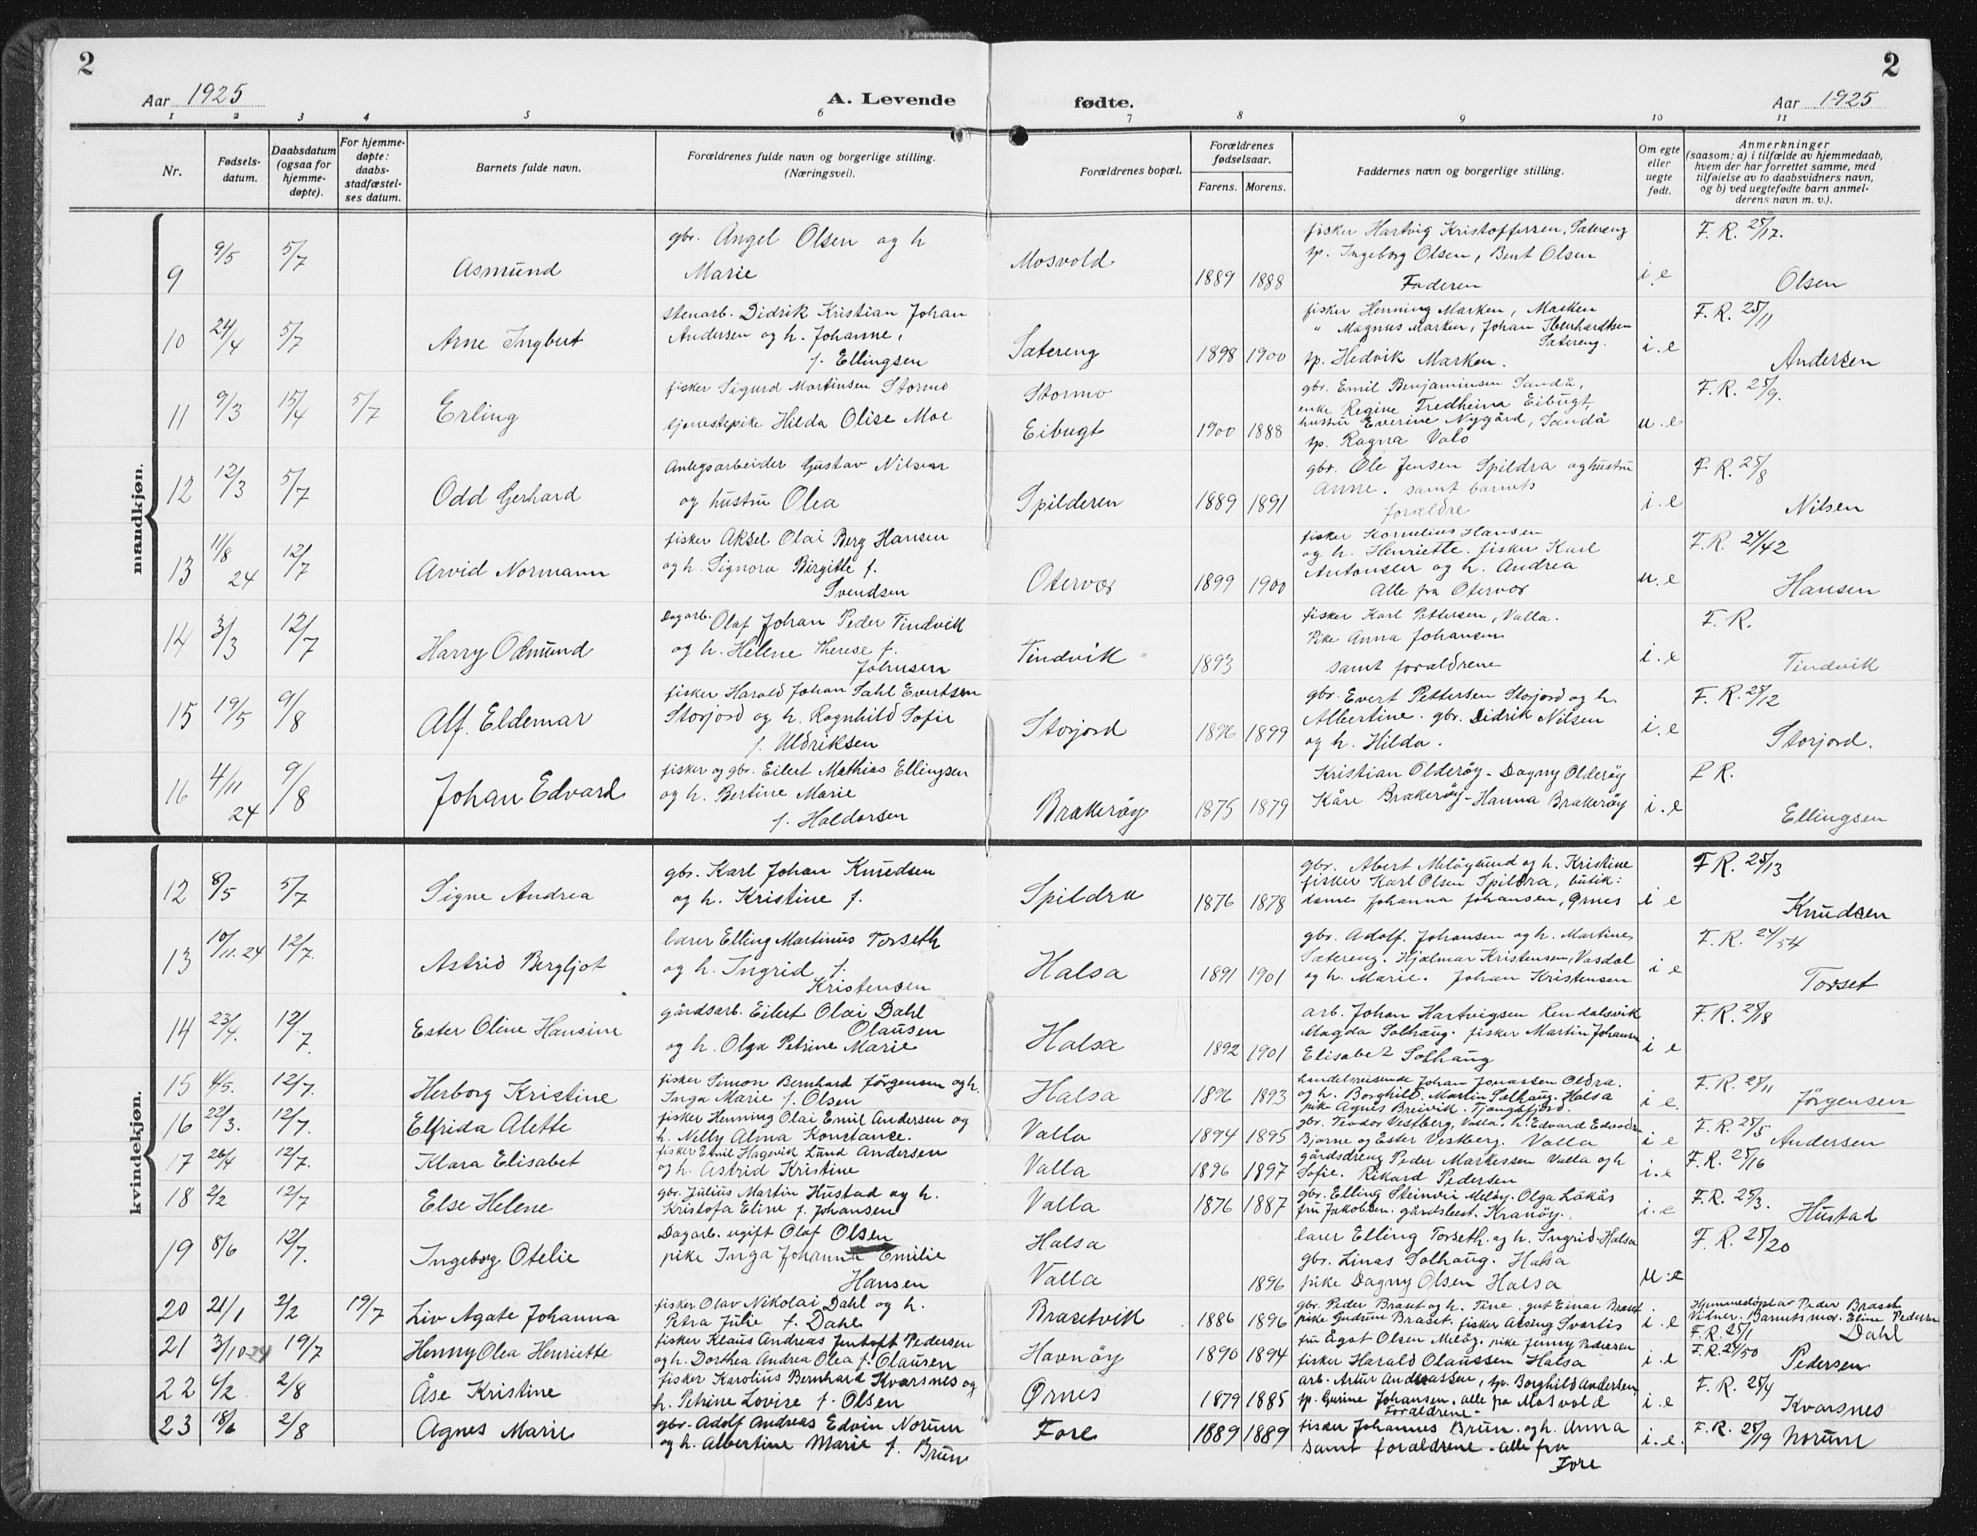 2
2
Aar 1925
A. Levende fødte.
Aar 1925
1 2 3 4 5 6 7 8 9 10 11
Nr.
Fødsels-
datum.
Daabsdatum
(ogsaa for
hjemme-
døpte).
For hjemme-
døpte:
daabs-
stadfæstel-
ses datum.
Barnets fulde navn.
Forældrenes fulde navn og borgerlige stilling.
(Næringsvei).
Forældrenes bopæl.
Forældrenes
fødselsaar.
Farens. Morens.
Faddernes navn og borgerlige stilling.
Om egte
eller
uegte
født.
Anmerkninger
(saasom: a) i tilfælde av hjemmedaab,
hvem der har forrettet samme, med
tilføielse av to daabsvidners navn,
og b) ved uegtefødte barn anmel-
derens navn m. v.).
mandkjøn.
9 9/5 5/7 Asmund
gbr. Angel Olsen og h
Marie
Mosvold 1889 1888
fisker Hartvig Kristoffersen, Sætereng
sp. Ingeborg Olsen, Bent Olsen
Faderen
i.e
F. R. 25/17.
Olsen
10 24/4 5/7 Arne Ingbert
stenarb. Didrik Kristian Johan
Andersen og h. Johanne,
f. Ellingsen
Sætereng 1898 1900
fisker Henning Marken, Marken
" Magnus Marken, Johan Ibenhardtsen
Sætereng.
sp. Hedvik Marken.
i.e
F. R. 25/11
Andersen
11 9/3 15/4 5/7 Erling
fisker Sigurd Martinsen Stormo
tjenestepike Hilda Olise Moe
Stormo
Eibugt 1900 1888
gbr. Emil Benjaminsen Sandå,
enke Regine Fredheim Eibugt,
hustru Everine Nygård, Sandå
sp. Ragna Valo
u.e
F. R. 25/9.
12 12/3 5/7 Odd Gerhard
Anlegsarbeider Gustav Nilsen
og hustru Olea
Spilderen 1889 1891
gbr. Ole Jensen Spildra og hustru
Anne. samt barnets
forældre
i.e
F R. 25/8
Nilsen
13 11/8 24 12/7 Arvid Normann
fisker Aksel Olai Berg Hansen
og h. Signora Birgitte f.
Svendsen
Otervær 1899 1900
fisker Kornelius Hansen
og h. Henriette. fisker Karl
Antonsen og h. Andrea
Alle fra Otervær
u.e
F.R. 24/42
Hansen
14 3/3 12/7 Harry Odmund
Dagarb. Olaf Johan Peder Tindvik
og h. Helene Therese f.
Johnsen
Tindvik 1893
fisker Karl Pettersen, Valla.
Pike Anna Johansen
samt forældrene
i.e
F. R.
Tindvik
15 19/5 9/8 Alf Eldemar
fisker Harald Johan Dahl Evertsen
Storjord og h. Ragnhild Sofie
f. Uldriksen
Storjord 1896 1899
gbr. Evert Pettersen Storjord og h.
Albertine. gbr. Didrik Nilsen
og h. Hilda.
i.e
F. R. 25/12
Storjord.
16 4/11 24 9/8 Johan Edvard
fisker og gbr. Eilert Mathias Ellingsen
og h. Bertine Marie
f. Haldorsen
Brækerøy 1875 1879
Kristian Olderøy - Dagny Olderøy
Kåre Brækerøy - Hanna Brækerøy
i.e
F R.
Ellingsen
kvindekjøn.
12 8/5 5/7 Signe Andrea
gbr. Karl Johan Knudsen
og h. Kristine f.
Spildra 1876 1878
gbr. Abert Meløysund og h. Kristine
fisker Karl Olsen Spildra, butik:
dame Johanna Johansen, Ørnes
i e
F R. 25/13
Knudsen
13 10/11.24 12/7. Astrid Bergljot
lærer Elling Martinus Torseth
og h. Ingrid f.
Kristensen
Halsa 1891 1901
gbr. Adolf. Johansen og h. Martine,
Sætereng. Hjalmar Kristensen, Vasdal
og h. Marie. Johan Kristensen
i.e
F. R. 24/54
Torset
14 23/4. 12/7. Ester Oline Hansine
gårdsarb. Eilert Olai Dahl
Olausen
og h. Olga Petrine Marie
Halsa 1892 1901
arb. Johan Hartvigsen Rendalsvik
Magda Solhaug. fisker Martin Johansen
Elisabet Solhaug
i e
F. R. 25/18
15 4/5. 12/7. Herborg Kristine
fisker Simon Bernhard Jørgensen og h.
Inga Marie f. Olsen
Halsa 1896 1893
handelsreisende Johan Jonassen Oldra.
og h. Borghild. Martin Solhaug, Halsa
pike Agnes Breivik. Tjongsfjord.
i e.
F. R. 25/11
Jørgensen
16 22/3. 12/7. Elfrida Alette
fisker Henning Olai Emil Andersen og
h. Nelly Alma Konstance.
Valla 1894 1895
gbr. Teodor Vestberg, Valla. h. Edvard Edvardsen
Bjarne og Ester Vestberg. Valla
i e
F. R. 25/5
Andersen
17 26/4 12/7. Klara Elisabet
fisker Emil Hagevik Lund Andersen
og h. Astrid Kristine
Valla 1896 1897
gårdsdreng Peder Markussen Valla og h
Sofie. Rikard Pedersen
i.e
F. R. 25/16
18 2/2 12/7 Else Helene
gbr. Julius Martin Hustad og h.
Kristofa Eline f. Johansen
Valla 1876 1887
gbr. Elling Steinvei Meløy. Olga Låkås
fru Jakobsen. gårdsbest. Kranøy.
i.e
F. R. 25/3.
Hustad
19 8/6 12/7. Ingeborg Otelie
Dagarb. ugift Olaf Olsen
pike Inga Johanne Emilie
Hansen
Halsa
Valla 1896
lærer Elling Torseth og h. Ingrid - Halsa
gbr. Linas Solhaug. Halsa
pike Dagny Olsen Halsa
u.e
F. R. 25/20
20 21/1 2/2 19/7 Liv Agate Johanna
fisker Olav Nikolai Dahl og h.
Petra Julie f. Dahl
Brasetvik 1886 1896
gbr. Peder Braset og h. Tine. gut Einar Braset.
pike Gudrun Braset. fisker Assing Svartis
i e
Hjemmedøpt av Peder Braset
Vidner. Barnets mor. Eline Pedersen
F. R. 25/1
Dahl
21 3/10-24 19/7 Henny Olea Henriette
fisker Klaus Andreas Jentoft Pedersen
og h. Dorthea Andrea Olea f. Olausen
Havnøy 1890 1894
fru Ågot Olsen Meløy. pike Jenny Pedersen
fisker Harald Olaussen Halsa
i e
F. R. 24/50
Pedersen
22 6/2 2/8 Åse Kristine
fisker Karolius Bernhard Kvarsnes og
h. Petrine Lovise f. Olsen
Ørnes 1879 1885
arb. Artur Andreassen, sp. Borghild Andersen
sp. Gurine Johansen, alle fra Mosvold
Forældrene.
i e
F. R. 25/4
Kvarsnes
23 18/6 2/8 Agnes Marie
gbr. Adolf Andreas Edvin Norum
og h. Albertine Marie f. Brun
Fore 1889 1889
fisker Johannes Brun. og h. Anna
samt forældrene. alle fra
Fore
i.e.
F. R. 25/19 Norum